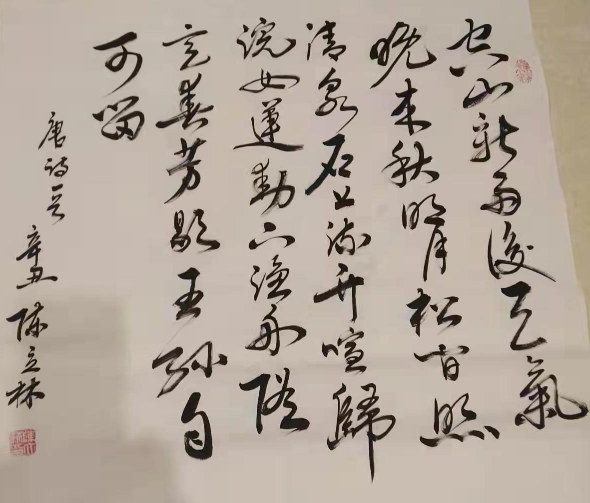 空山新雨後天氣
晚来秋明月松间照
清泉石上流竹喧歸
浣女蓮動下漁舟隨
意春芳歇王孫自
可留
唐詩一首 辛丑 陳立林